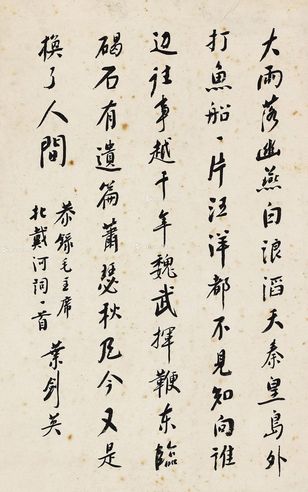 大雨落幽燕白浪滔天秦皇島外
打魚船一片汪洋都不見知向誰
边往事越千年魏武揮鞭东臨
碣石有遺篇蕭瑟秋风今又是
換了人間
恭錄毛主席
北戴河词一首
葉剑英